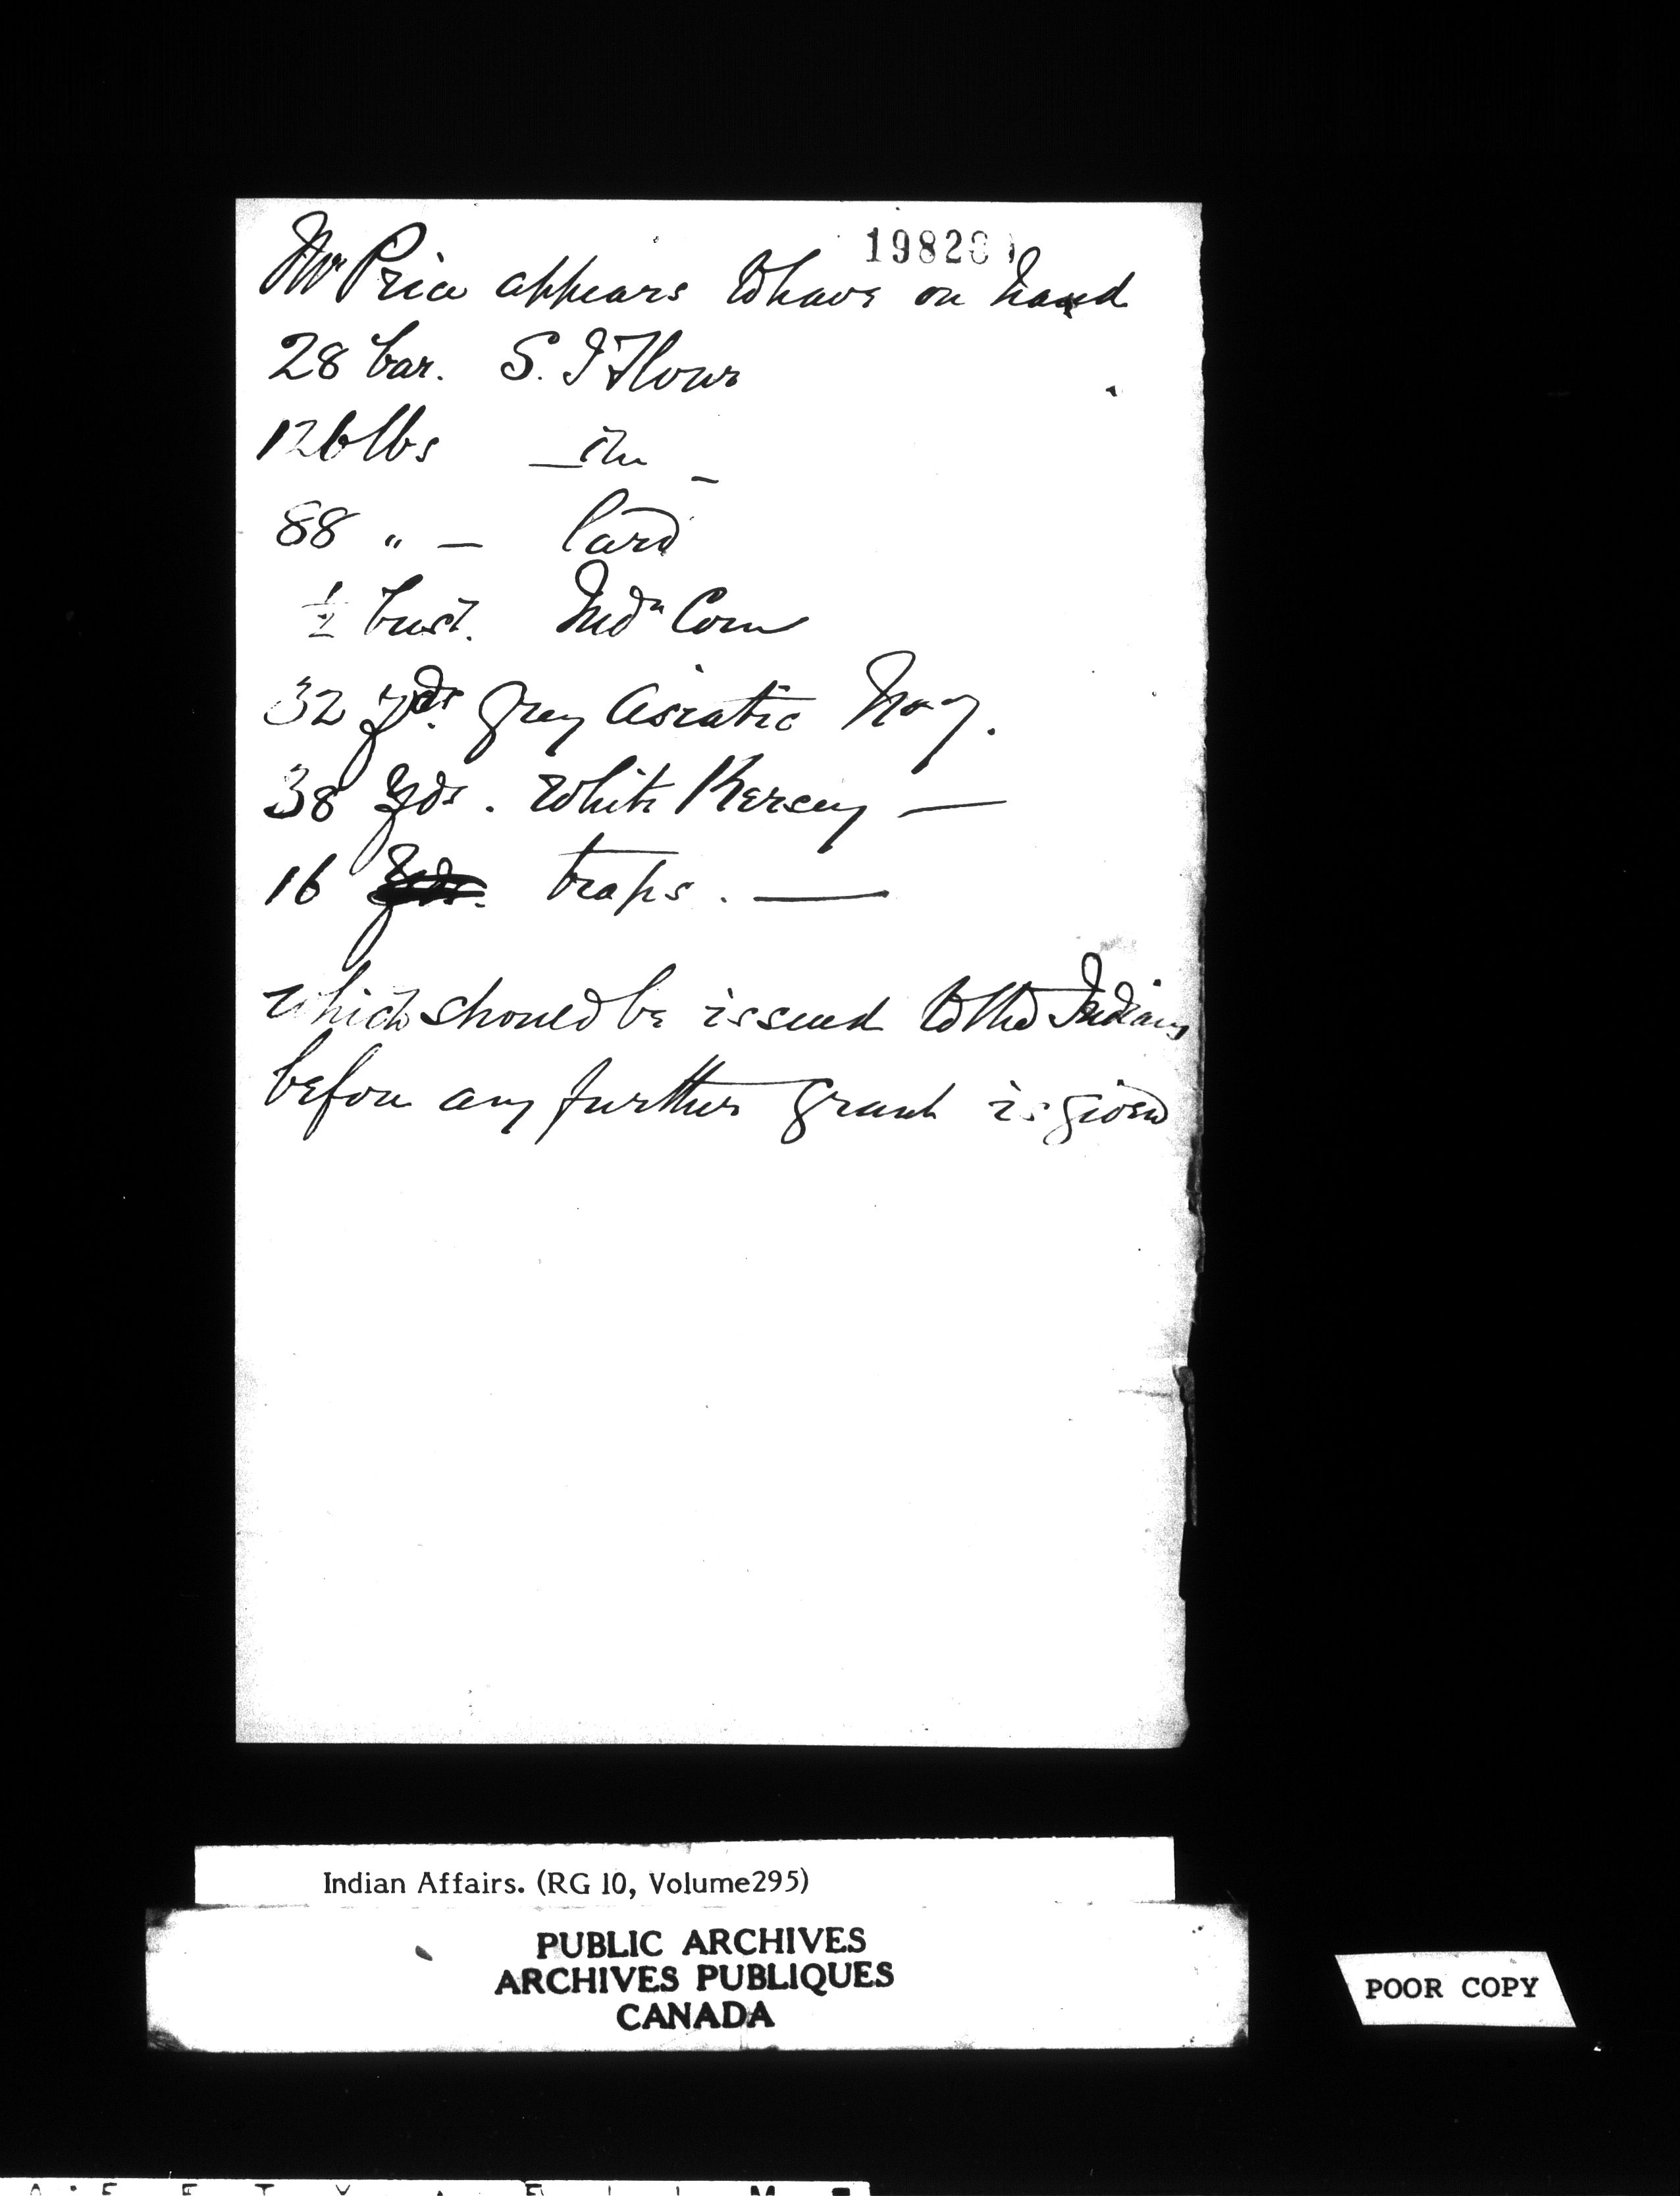 198280
Mr Price appears to have on hand
28 bar. S. F Flour
126 lbs
88 " — lard
½ bush. Indn Corn
32 yds. Grey Asiatic No 7.
38 yds. White Kersey —
16 traps. —
which should be issued to the Indians
before any further grant is given
Indian Affairs. (RG 10, Volume295)
PUBLIC ARCHIVES
ARCHIVES PUBLIQUES
CANADA
POOR COPY